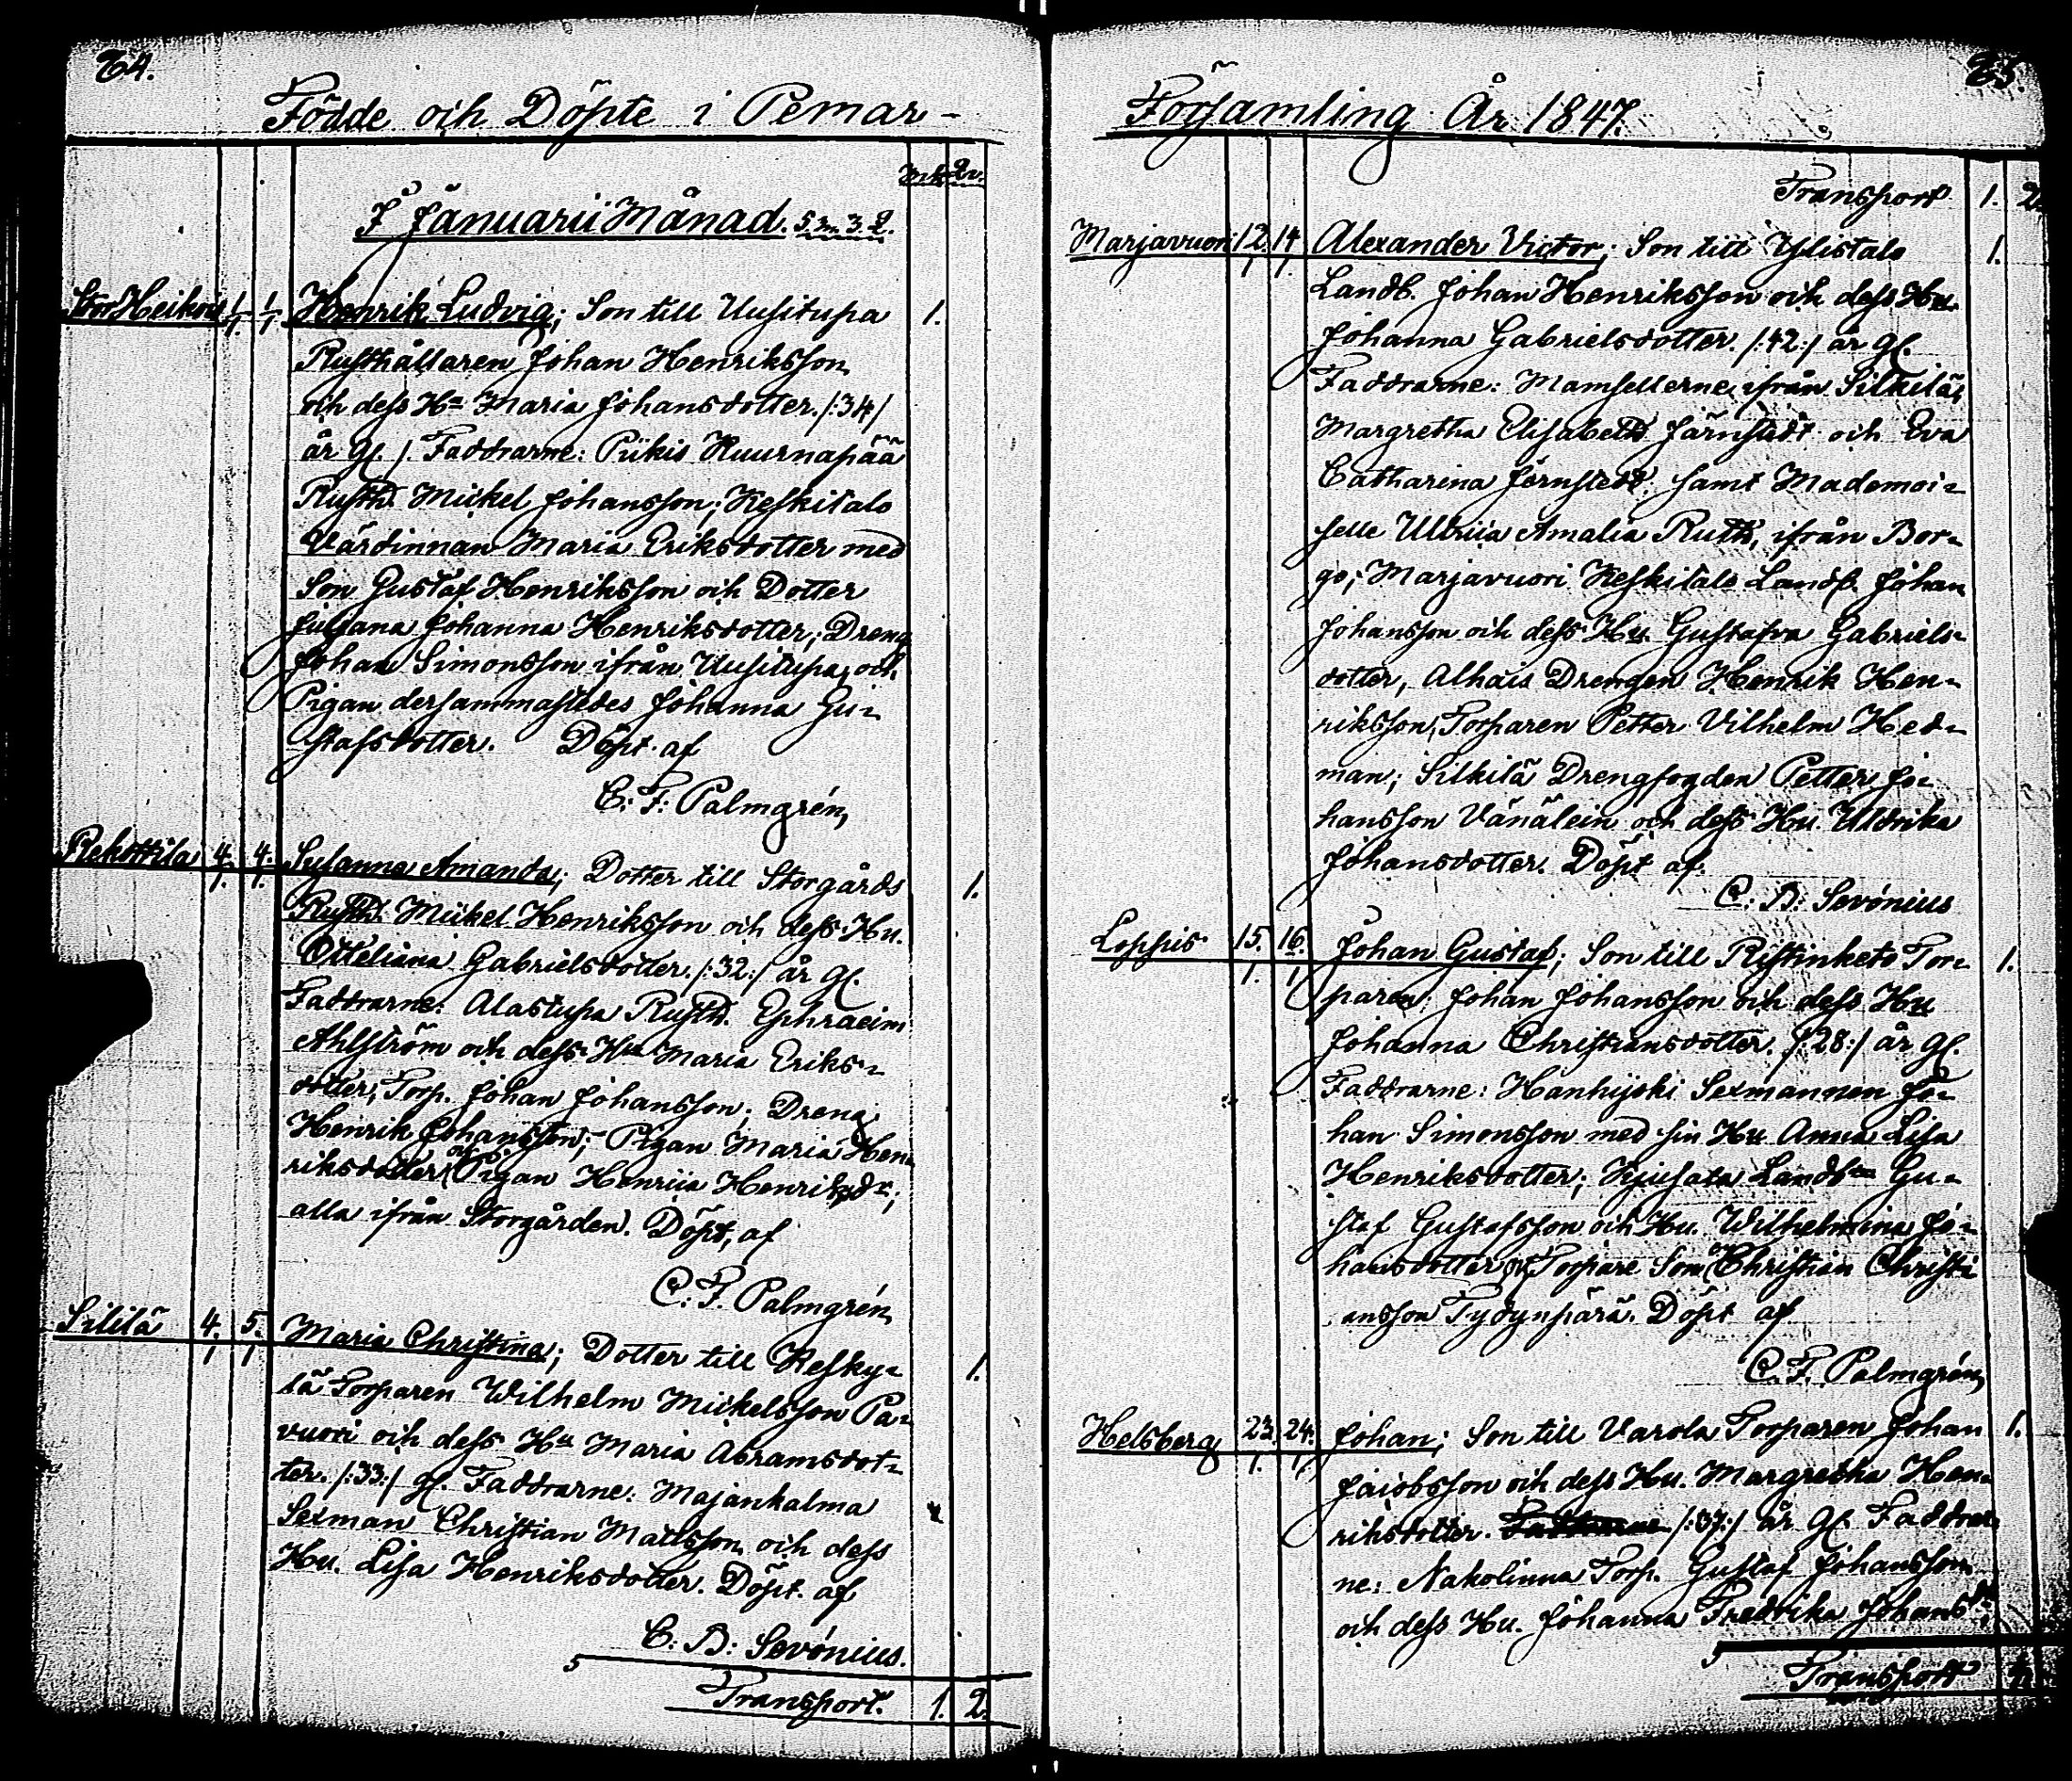 64.
Födde och Döpte i Pemar-
Mk. Qv.
I Januarii Månad. 5. m. 3. 2.
Stor Heikois 1/1 1/1 Henrik Ludvig; Son till Uusitupa 1.
Rusthållaren Johan Henriksson
och dess Hu Maria Johansdotter. /:34/
år gl. /. Faddrarne: Piikis Kuurnapää
Rusth. Mickel Johansson; Keskitalo
Värdinnan Maria Eriksdotter med
Son Gustaf Henriksson och Dotter
Juliana Johanna Henriksdotter; Dreng
Johan Simonsson ifrån Uusitupa, och
Pigan dersammastedes Johanna Gu-
stafsdotter. Döpt af
C: F: Palmgrén,
Rekottila 4/1. 4/1. Susanna Amanda; Dotter till Storgårds 1.
Rusth. Mickel Henriksson och dess Hu.
Otteliana Gabrielsdotter. /:32:/ år gl.
Faddrarne: Alastupa Rusth. Ephraeim
Ahlström och dess Hu Maria Eriks-
dotter; Torp. Johan Johansson; Dreng
Henrik Johansson; Pigan Maria Hen-
riksdotter och Pigan Henrica Henriksdr;
alla ifrån Storgården. Döpt, af
C. F. Palmgrén
Sililä 4/1. 5/1. Maria Christina; Dotter till Kesky- 1.
lä Torparen Wilhelm Mickelsson Pa-
vuori och dess Hu Maria Abramsdot-
ter. /:33:/ gl. Faddrarne: Majankalma
Sexman Christian Mattsson och dess
Hu. Lisa Henriksdotter. Döpt. af
C: B: Sevónius.
Transport. 1. 2.
65.
Församling År 1847.
Transport 1. 2.
Marjavuori 12/1. 14/1. Alexander Victor; Son till Ylistalo 1.
Landb. Johan Henriksson och dess Hu
Johanna Gabrielsdotter. /:42:/ år gl.
Faddrarne: Mamsellerne ifrån Silkilä;
Margretha Elisabeth Järnstedt och Eva
Catharina Jernstedt samt Mademoi-
selle Ulrica Amalia Ruth, ifrån Bor-
go; Marjavuori Keskitalo Landb. Johan
Johansson och dess Hu Gustafva Gabriels-
dotter, Alhais Drengen Henrik Hen-
riksson, Torparen Petter Vilhelm Hed-
man; Silkilä Drengfogden Petter Jo-
hansson Vänälein och dess Hu. Uldrika
Johansdotter. Döpt af.
C: B: Sevónius
Loppis 15/1. 16/1 Johan Gustaf; Son till Ristinketo Tor- 1.
paren Johan Johansson och dess Hu
Johanna Christiansdotter. /:28:/ år gl.
Faddrarne: Hanhijoki Sexmannen Jo-
han Simonsson med sin Hu Anna Lisa
Henriksdotter; Kjusala Landbn Gu-
staf Gustafsson och Hu. Wilhelmina Jo-
hansdotter och Torpare Son Christian Christi
ansson Tydynpärä. Döpt af
C. F. Palmgrén,
Helsberg 23/1. 24/1. Johan; Son till Varola Torparen Johan 1.
Jacobsson och dess Hu. Margretha Hen-
riksdotter. Faddrarne /:37:/ år gl. Faddrar-
ne: Nakolinna Torp. Gustaf Johansson
och dess Hu. Johanna Fredrika Johansdr;
Transport